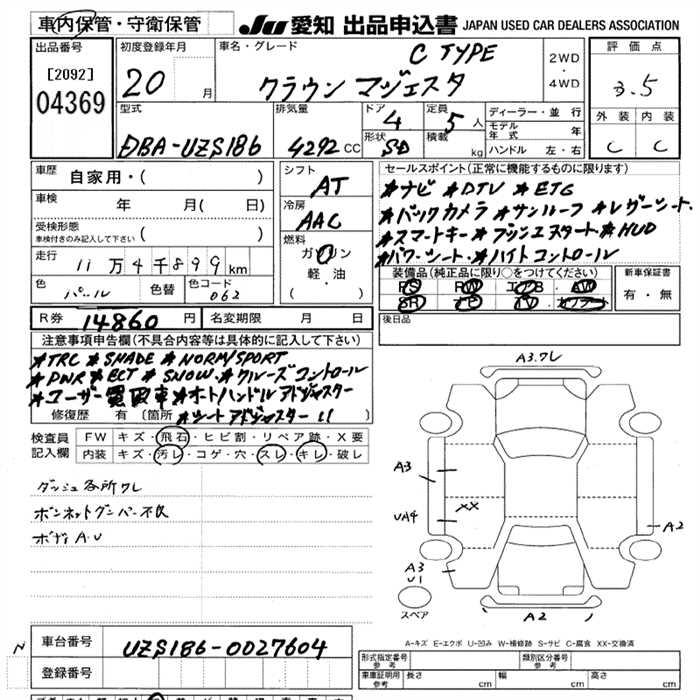 車内保管・守衛保管
JU 愛知 出品申込書 JAPAN USED CAR DEALERS ASSOCIATION
出品番号
[2092]
04369
初度登録年月
20 月
車名・グレード
C TYPE
クラウン マジェスタ
2WD
・
4WD
評価点
3.5
外装 内装
C C
型式
DBA-UZS186
排気量
4292 CC
ドア
4
形状
SD
定員
5 人
積載
kg
ディーラー・並行
モデル年式 年
ハンドル 左・右
車歴
自家用・( )
車検
年 月( 日)
受検形態
車検付きのみ記入して下さい
( )
走行
11万4千899km
色
パール
色替
色コード
062
シフト
AT
冷房
AAC
燃料
ガソリン
軽・油
( )
セールスポイント(正常に機能するものに限ります)
*ナビ *DTV *ETC
*バックカメラ *サンルーフ *レザーシート
*スマートキー *プッシュスタート *HUD
*パワーシート *ハイトコントロール
装備品(純正品に限り○をつけてください)
PS PW エアB AW
SR ナビ TV カワシート
新車保証書
有・無
後日品
R券 14860 円
名変期限 月 日
注意事項申告欄(不具合内容等は具体的に記入して下さい)
*TRC *SHADE *NORM/SPORT
*PWR *ECT *SNOW *クルーズコントロール
*ユーザー買取車 *オートハンドルアドジャスター
修復歴 有 〔箇所 *シートアドジャスター
検査員記入欄
FW キズ・飛石・ヒビ割・リペア跡・X要
内装 キズ・汚レ・コゲ・穴・スレ・キレ・破レ
ダッシュ各所ワレ
ボンネットダンパー不良
ボディA.U
A3.ワレ
A3
UA4
XX
A2
A3
U1
スペア
A2
A-キズ E-エクボ U-凹み W-補修跡 S-サビ C-腐食 XX-交換済
N
車台番号
UZS186-0027604
登録番号
形式指定番号
参考
類別区分番号
参考
車庫証明用
参考
長さ cm
幅 cm
高さ cm